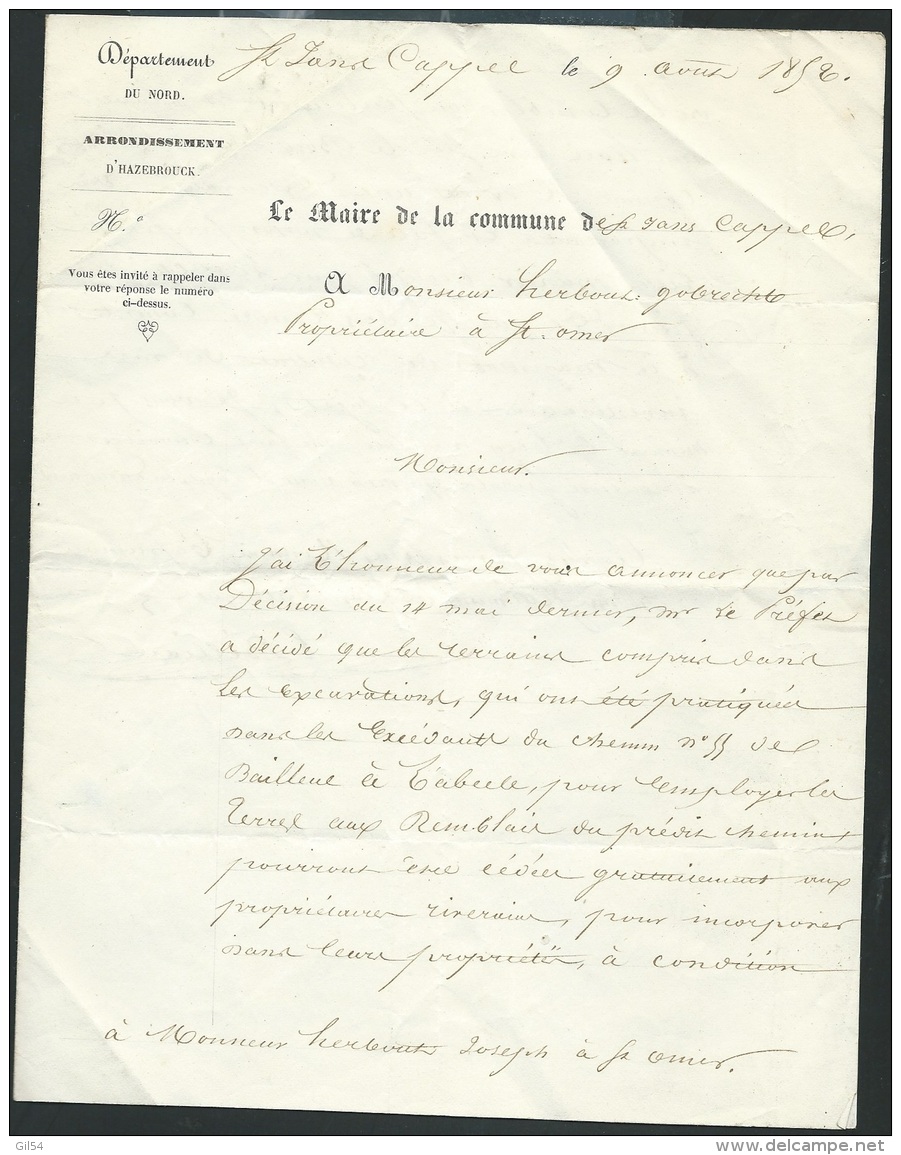 Département
DU NORD.
ARRONDISSEMENT
D'HAZEBROUCK.
N.º
Vous êtes invité à rappeler dans
votre réponse le numéro
ci-dessus.
St Jans Cappel le 9 aout 1852.
Le Maire de la commune de St Jans Cappel,
A Monsieur herbout: gobrecht
Propriétaire à St. omer
Monsieur.
J'ai L'honneur de vous annoncer que par
Décision du 14 mai dernier, mr Le Préfet
a décidé que les terrains compris dans
Les excavations, qui ont été pratiqués
dans les Excédants du chemin nº 55 de
Bailleul à L'abeele, pour Employer les
Terres aux Remblais du prédit chemin
pourront être cédés gratuitement aux
propriétaires riverains, pour incorporer
dans leurs propriétés, à condition
à Monsieur herbout Joseph à St omer.
Gil54
www.delcampe.net